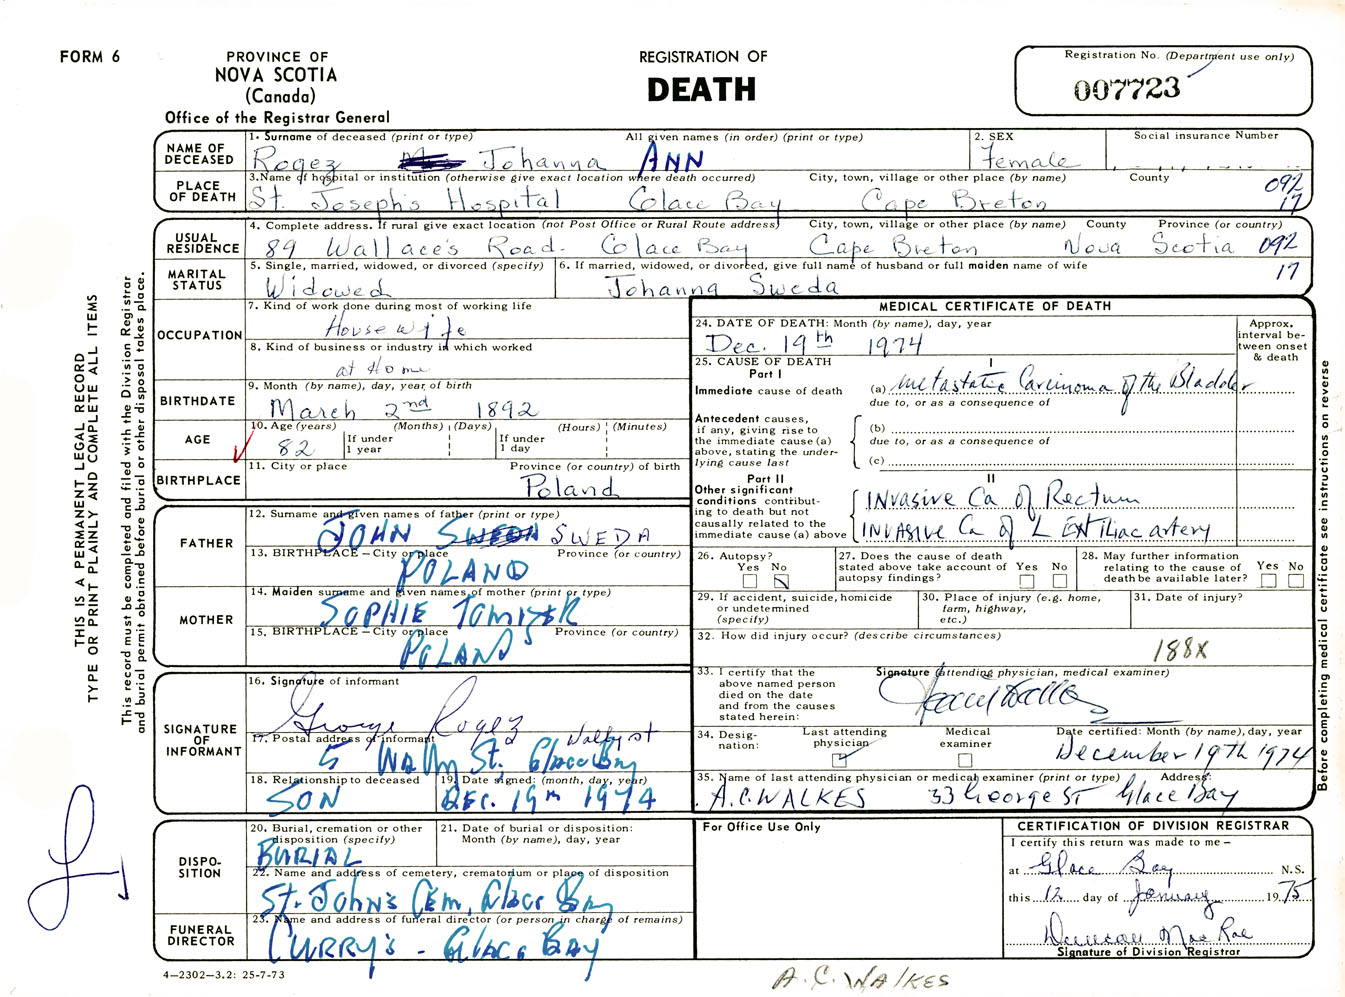 FORM 6
PROVINCE OF
NOVA SCOTIA
(Canada)
Office of the Registrar General
REGISTRATION OF
DEATH
Registration No. (Department use only)
007723
THIS IS A PERMANENT LEGAL RECORD
TYPE OR PRINT PLAINLY AND COMPLETE ALL ITEMS
This record must be completed and filed with the Division Registrar
and burial permit obtained before burial or other disposal takes place.
NAME OF DECEASED
1. Surname of deceased (print or type) All given names (in order) (print or type)
Rogez Johanna ANN
2. SEX
Female
Social insurance Number
PLACE OF DEATH
3. Name of hospital or institution (otherwise give exact location where death occurred) City, town, village or other place (by name) County
St. Joseph's Hospital Glace Bay Cape Breton
092
17
USUAL RESIDENCE
4. Complete address. If rural give exact location (not Post Office or Rural Route address) City, town, village or other place (by name) County Province (or country)
89 Wallace's Road- Glace Bay Cape Breton Nova Scotia 092
17
MARITAL STATUS
5. Single, married, widowed, or divorced (specify)
Widowed
6. If married, widowed, or divorced, give full name of husband or full maiden name of wife
Johanna Sweda
OCCUPATION
7. Kind of work done during most of working life
Housewife
8. Kind of business or industry in which worked
at Home
BIRTHDATE
9. Month (by name), day, year, of birth
March 2nd 1892
AGE
10. Age (years) (Months) (Days) (Hours) (Minutes)
82 If under 1 year If under 1 day
BIRTHPLACE
11. City or place Province (or country) of birth
Poland
FATHER
12. Surname and given names of father (print or type)
JOHN SWEDA
13. BIRTHPLACE – City or place Province (or country)
POLAND
MOTHER
14. Maiden surname and given names of mother (print or type)
SOPHIE
15. BIRTHPLACE – City or place Province (or country)
POLAND
SIGNATURE OF INFORMANT
16. Signature of informant
George Rogez
17. Postal address of informant
5 Wallby St. Glace Bay
Wallby st
18. Relationship to deceased
SON
19. Date signed: (month, day, year)
DEC. 19th 1974
DISPO-
SITION
20. Burial, cremation or other disposition (specify)
BURIAL
21. Date of burial or disposition: Month (by name), day, year
22. Name and address of cemetery, crematorium or place of disposition
St. John's Cem, Glace Bay
FUNERAL DIRECTOR
23. Name and address of funeral director (or person in charge of remains)
CURRY's - GLACE BAY
4—2302—3.2: 25-7-73
MEDICAL CERTIFICATE OF DEATH
24. DATE OF DEATH: Month (by name), day, year
Dec. 19th 1974
Approx. interval be-
tween onset & death
25. CAUSE OF DEATH
Part I
I
Immediate cause of death
(a) Metastatic Carcinoma of the Bladder
due to, or as a consequence of
Antecedent causes,
if any, giving rise to
the immediate cause (a)
above, stating the under-
lying cause last
(b)
due to, or as a consequence of
(c)
Part II
II
Other significant
conditions contribut-
ing to death but not
causally related to the
immediate cause (a) above
Invasive Ca of Rectum
INVASIVE Ca of L EXT Iliac artery
26. Autopsy?
Yes No
27. Does the cause of death stated above take account of autopsy findings?
Yes No
28. May further information relating to the cause of death be available later?
Yes No
29. If accident, suicide, homicide or undetermined (specify)
30. Place of injury (e.g. home, farm, highway, etc.)
31. Date of injury?
32. How did injury occur? (describe circumstances)
188X
33. I certify that the
above named person
died on the date
and from the causes
stated herein:
Signature (attending physician, medical examiner)
34. Desig-
nation:
Last attending physician
Medical examiner
Date certified: Month (by name), day, year
December 19TH 1974
35. Name of last attending physician or medical examiner (print or type) Address:
A.C. WALKES 33 George ST Glace Bay
For Office Use Only
CERTIFICATION OF DIVISION REGISTRAR
I certify this return was made to me —
at Glace Bay N.S.
this 12 day of January 1975
Duncan MacRae
Signature of Division Registrar
A. C. WALKES
Before completing medical certificate see instructions on reverse